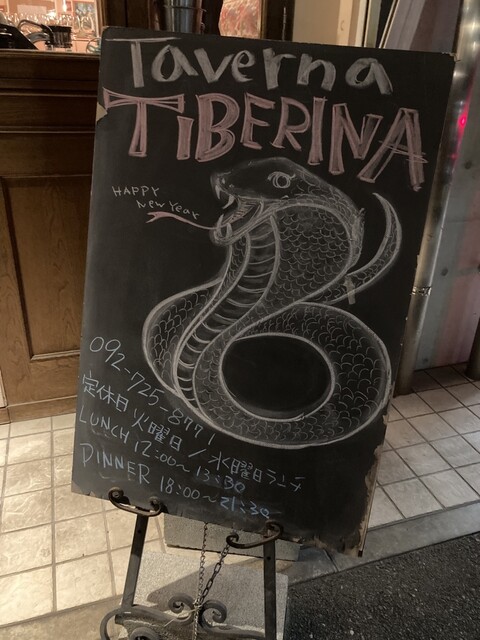 Taverna
TiBERINA
HAPPY
New Year
092-725-8771
定休日 火曜日/水曜日ランチ
LUNCH 12:00~13:30
DINNER 18:00~21:30